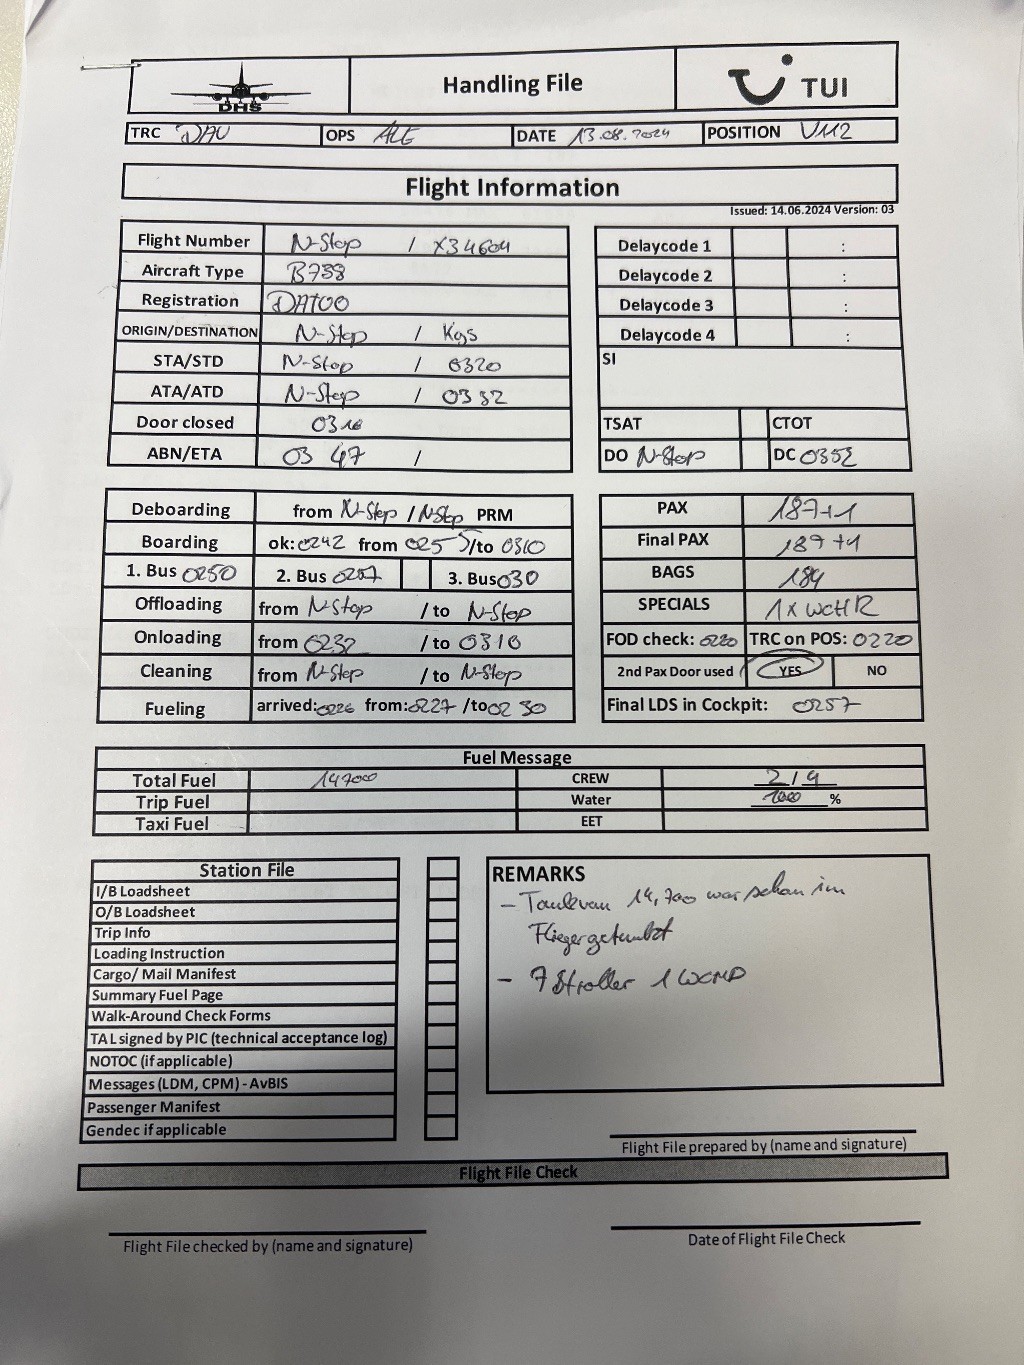 DHS
Handling File
TUI
TRC DAU OPS ALE DATE 13.08.2024 POSITION V112
Flight Information
Issued: 14.06.2024 Version: 03
Flight Number N-Stop / X34604
Aircraft Type B738
Registration DATUO
ORIGIN/DESTINATION N-Stop / Kgs
STA/STD N-Stop / 0320
ATA/ATD N-Stop / 0332
Door closed
ABN/ETA 03 47 /
Delaycode 1 :
Delaycode 2 :
Delaycode 3 :
Delaycode 4 :
SI
TSAT CTOT
DO N-Stop DC 0352
Deboarding from N-Stop / N-Stop PRM
Boarding ok: 0242 from 0255 /to 0310
1. Bus 0250 2. Bus 0257 3. Bus 030
Offloading from N-Stop /to N-Stop
Onloading from 0232 /to 0310
Cleaning from N-Stop /to N-Stop
Fueling arrived: 0226 from: 0227 /to 0230
PAX 187+1
Final PAX 187+1
BAGS 184
SPECIALS 1x WCHR
FOD check: 0220 TRC on POS: 0220
2nd Pax Door used YES NO
Final LDS in Cockpit: 0257
Fuel Message
Total Fuel 14700 CREW 2/4
Trip Fuel Water 100 %
Taxi Fuel EET
Station File
I/B Loadsheet
O/B Loadsheet
Trip Info
Loading Instruction
Cargo/ Mail Manifest
Summary Fuel Page
Walk-Around Check Forms
TAL signed by PIC (technical acceptance log)
NOTOC (if applicable)
Messages (LDM, CPM) - AvBIS
Passenger Manifest
Gendec if applicable
REMARKS
- 14,700 war schon im
Flieger getankt
- 7 Stroller 1 WCMP
Flight File prepared by (name and signature)
Flight File Check
Flight File checked by (name and signature)
Date of Flight File Check